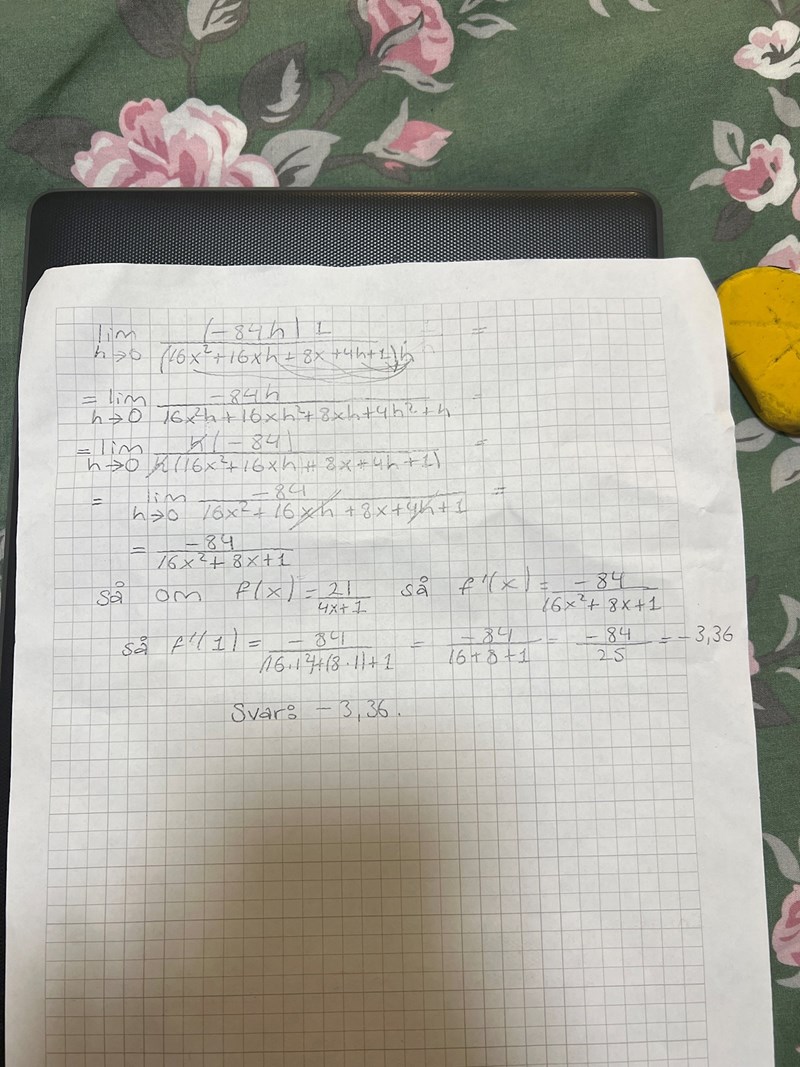 lim h→0 (-84h) 1 / (16x²+16xh+8x+4h+1)h =
= lim h→0 -84h / 16x²h+16xh²+8xh+4h²+h =
= lim h→0 h(-84) / h(16x²+16xh+8x+4h+1) =
= lim h→0 -84 / 16x²+16xh+8x+4h+1 =
= -84 / 16x²+8x+1
så om f(x)=21/4x+1 så f'(x)=-84/16x²+8x+1
så f'(1)=-84/(16·1²)+(8·1)+1 = -84/16+8+1 = -84/25 = -3,36
Svar: -3,36.